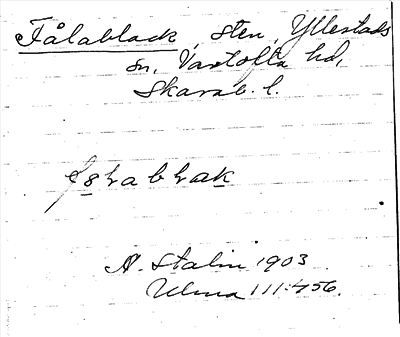 Fålablack, sten, Yllestads
sn, Vartofta hd,
Skarab. l.
A. Stalin 1903
Ulma 111:456.